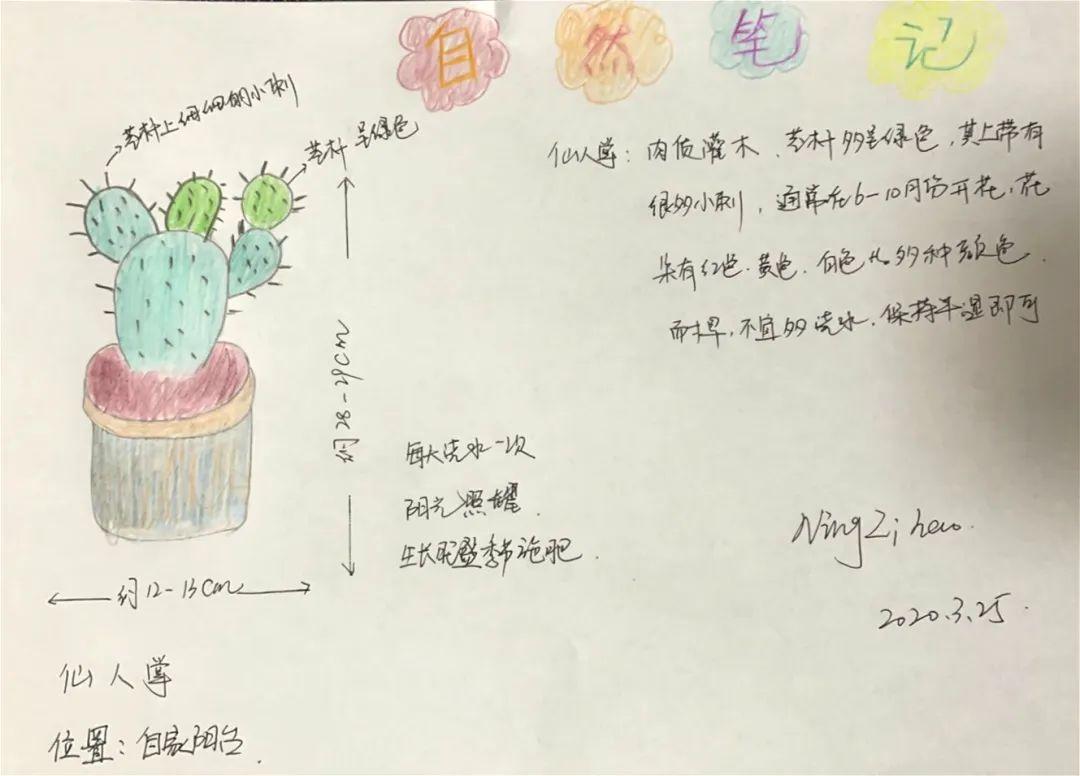 自然笔记
茎杆上细细的小刺
茎杆呈绿色
仙人掌：肉质灌木、茎杆多呈绿色，其上带有
很多小刺，通常在6-10月份开花，花
朵有红色、黄色、白色等多种颜色.
耐旱，不宜多浇水，保持半湿即可
约28-29cm
每天浇水一次
阳光照耀.
生长旺盛季节施肥.
NingZihao.
2020.3.25.
约12-13cm
仙人掌
位置：自家阳台.